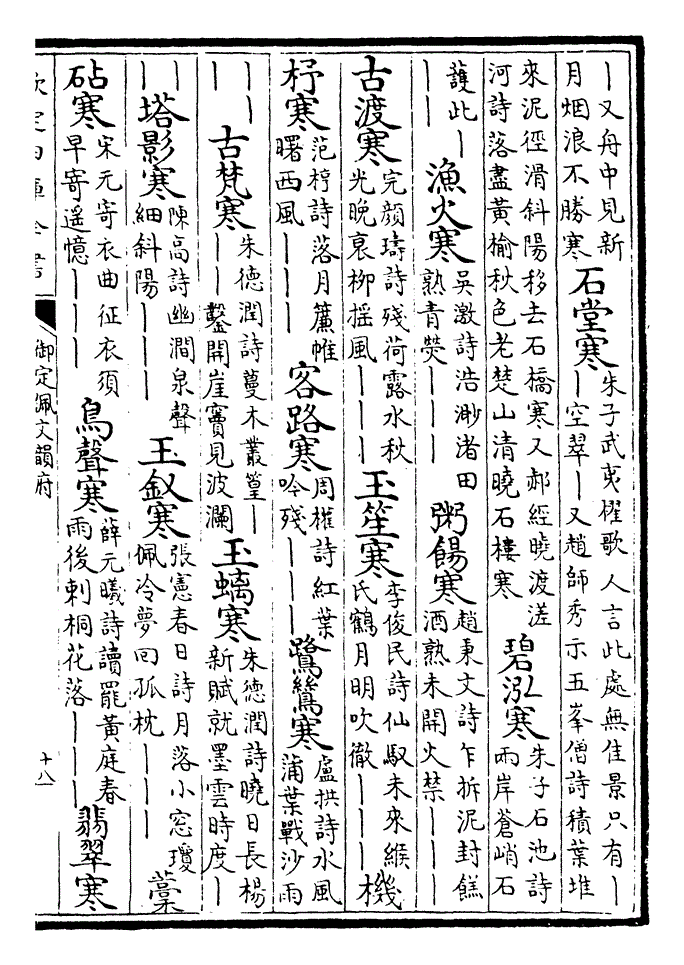 ｜又舟中見新
月烟浪不勝寒
石堂寒
朱子武夷櫂歌人言此處無佳景只有｜
｜空翠｜｜又趙師秀示五峯僧詩積葉堆
來泥徑滑斜陽移去石橋寒又郝經曉渡漨
河詩落盡黃榆秋色老楚山清曉石樓寒
碧泓寒
朱子石池詩
兩岸蒼峭石
護此｜
｜｜
漁火寒
吳激詩浩渺渚田
熟青熒｜｜｜
粥餳寒
趙秉文詩乍拆泥封餻
酒熟未開火禁｜｜｜
古渡寒
完顏璹詩殘荷露水秋
光晚衰柳摇風｜｜｜
玉笙寒
李俊民詩仙馭未來緱
氏鶴月明吹徹｜｜｜
機
杼寒
范梈詩落月簾帷
曙西風｜｜｜
客路寒
周權詩紅葉
吟殘｜｜｜
鷺鷥寒
盧拱詩水風
蒲葉戰沙雨
｜｜
｜
古梵寒
朱德潤詩蔓木叢篁｜
｜｜鑿開崖竇見波瀾
玉螭寒
朱德潤詩曉日長楊
新賦就墨雲時度｜
｜
｜
塔影寒
陳高詩幽澗泉聲
細斜陽｜｜｜
玉釵寒
張憲春日詩月落小窓瓊
佩冷夢回孤枕｜｜｜
藁
砧寒
宋元寄衣曲征衣須
早寄遥憶｜｜｜
鳥聲寒
薛元曦詩讀罷黃庭春
雨後刺桐花落｜｜｜
翡翠寒
御定佩文韻府
十八